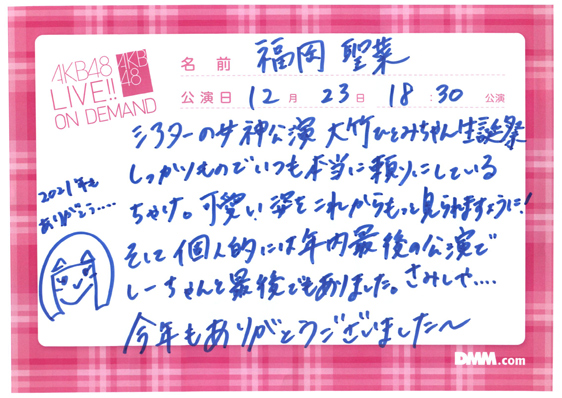 AKB48
LIVE!!
ON DEMAND
AKB
48
名前 福岡 聖菜
公演日 12月 23日 18:30 公演
シアターの女神公演 大竹ひとみちゃん生誕祭
しっかりものでいつも本当に頼りにしている
ちゃけ。可愛い姿をこれからもっと見られますように!
そして個人的には年内最後の公演で
しーちゃんと最後でもありました。さみしや....
今年もありがとうございました〜
2021年も
ありがとう.....
DMM.com